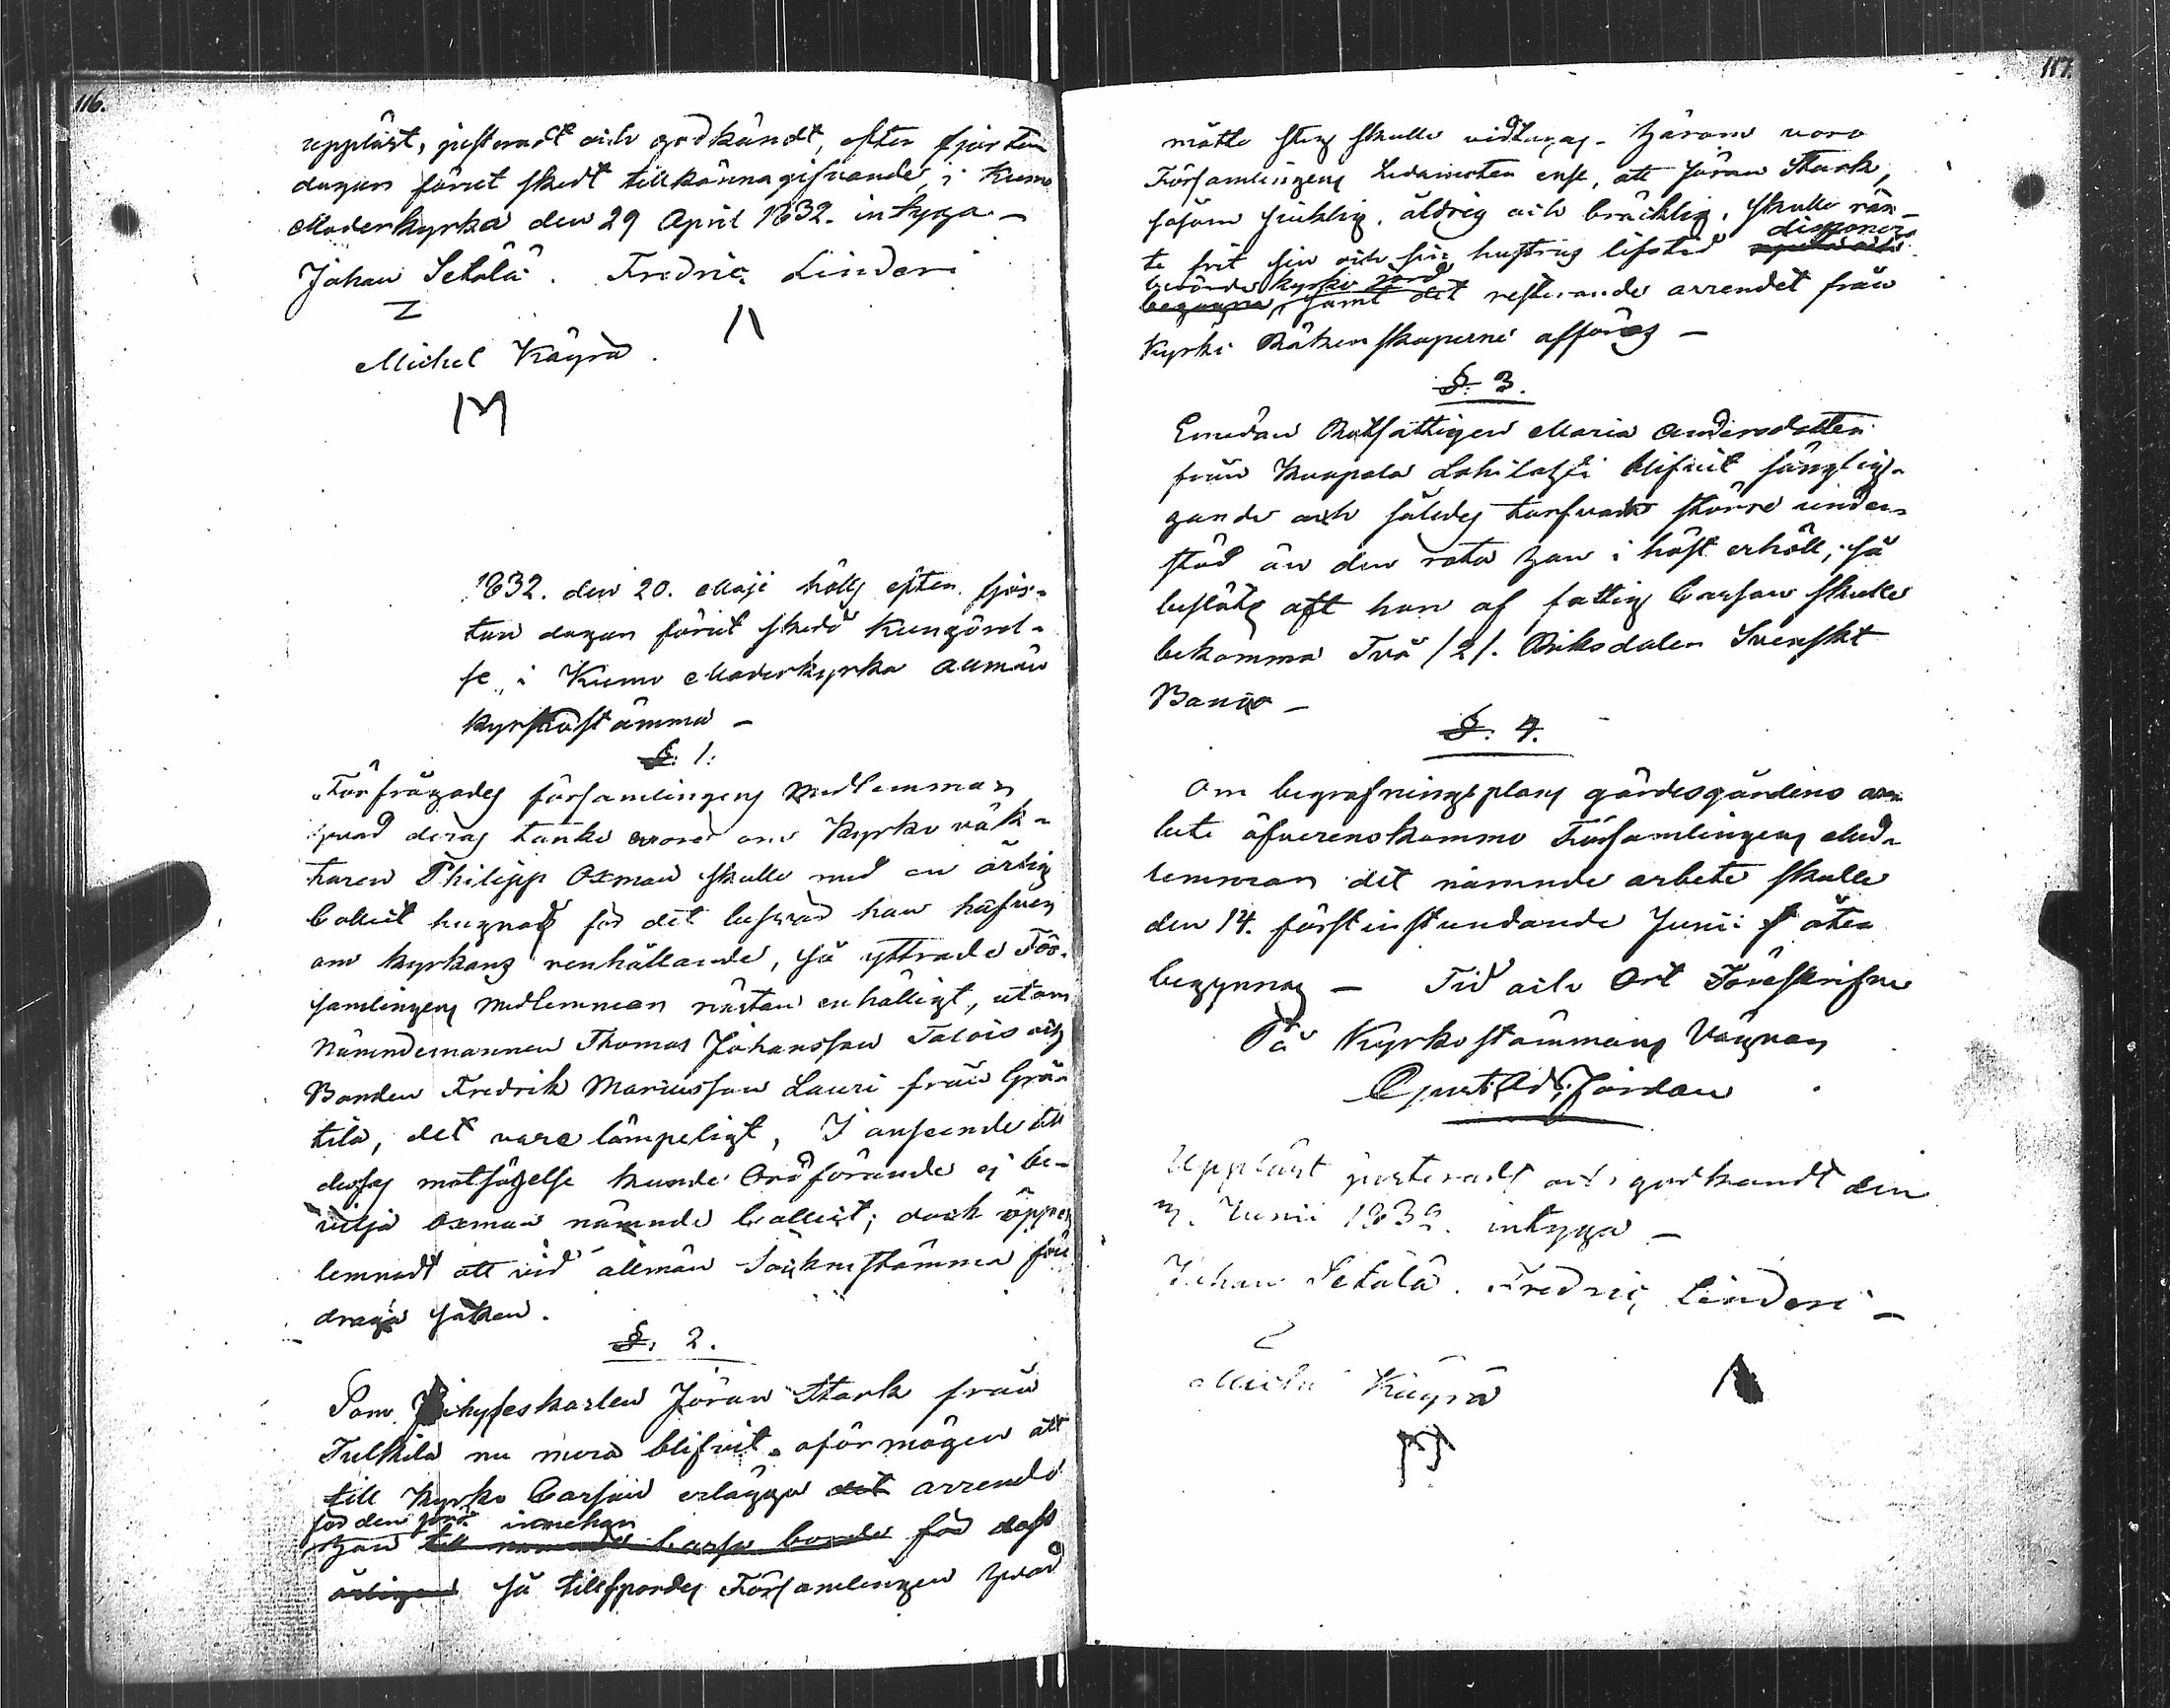 116.
uppläst, justeradt och godkändt, efter fjorton
dagars förut skedt tillkännagifvande, i Kumo
Moderkyrka den 29 April 1832. intyga —
Johan Setälä. Fredric Linderi
Michel Käyrä.
1832. den 20. Maji hölls efter fjor-
ton dagars förut skedd kungörel-
se, i Kumo Moderkyrka allmän
kyrkostämma —
§. 1.
Förfrågades församlingens medlemmar,
hvad deras tanke vore om kyrko väk-
taren Philipp Oxman skulle med en årlig
collect hugnas för det besvär han hafver
om kyrkans renhållande, så yttrade För-
samlingens medlemmar nästan enhälligt, utom
Nämndemannen Thomas Johansson Talois och
Bonden Fredrik Mariusson Lauri från Grä-
tilä, det vara lämpeligt, I anseende till
dessas motsägelse kunde Ordförande ej be-
vilja Oxman nämnde collect; dock öppet
lemnadt att vid allmän Sockne stämma före
draga saken.
§. 2.
Som Inhyseskarlen Jöran Stark från
Tulkila nu mera blifvit oförmögen att
till kyrko Cassan erlägga det arrende
för den jord innehar
han till nämnde cassa borde för dess
årligen så tillspordes Församlingen hvad
117.
mått steg skulle vidtagas. Härom voro
Församlingens Ledamöter ense, att Jöran Stark,
såsom sjuklig, åldrig och bräcklig, skulle rän-
disponera
te frit sin och sin hustrus lifstid
berörde kyrko jord
begagna, samt det resterande arrendet från
Kyrko Räkenskaperne afföras —
§. 3.
Emedan Rotfattigen Maria Andersdotter
från Kuapala Lahilatzi blifvit sänglig-
gande och således tarfvade större under-
stöd än den rota hon i höst erhöll, så
beslöts att hon af fattig Cassan skulle
bekomma Två /2/. Riksdaler Svenskt
Banco —
§. 4.
Om begrafningsplats gärdesgårdens ar-
bete öfverenskommo Församlingens Med-
lemmar det nämnde arbete skulle
den 14. förstinstundande Junii åter
begynnas — Tid och Ort Föreskrifne
På Kyrkostämmans Vägnar
Gust: Ad: Jordan
Uppläst justeradt och godkändt den
3. Junii 1832. intyga —
Johan Setälä. Fredric Linderi —
Michel Käyrä